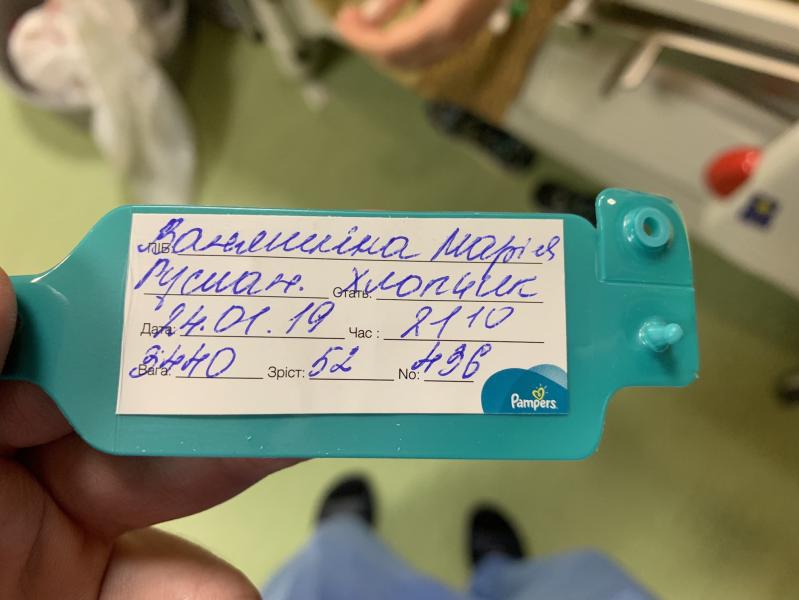 ПІВ Ванямкіна Марія
Руслан. Стать: Хлопчик
Дата: 24.01.19 Час : 21 10
Вага: 3440 Зріст: 52 No: 496
Pampers